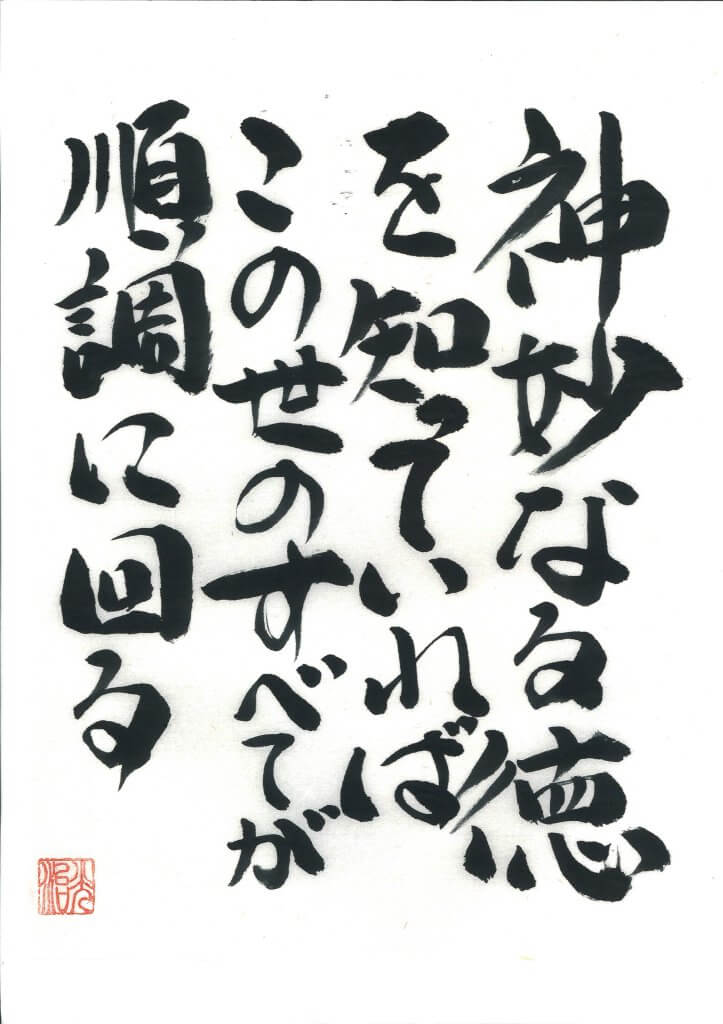 神妙なる徳
を知っていれば
この世のすべてが
順調に回る